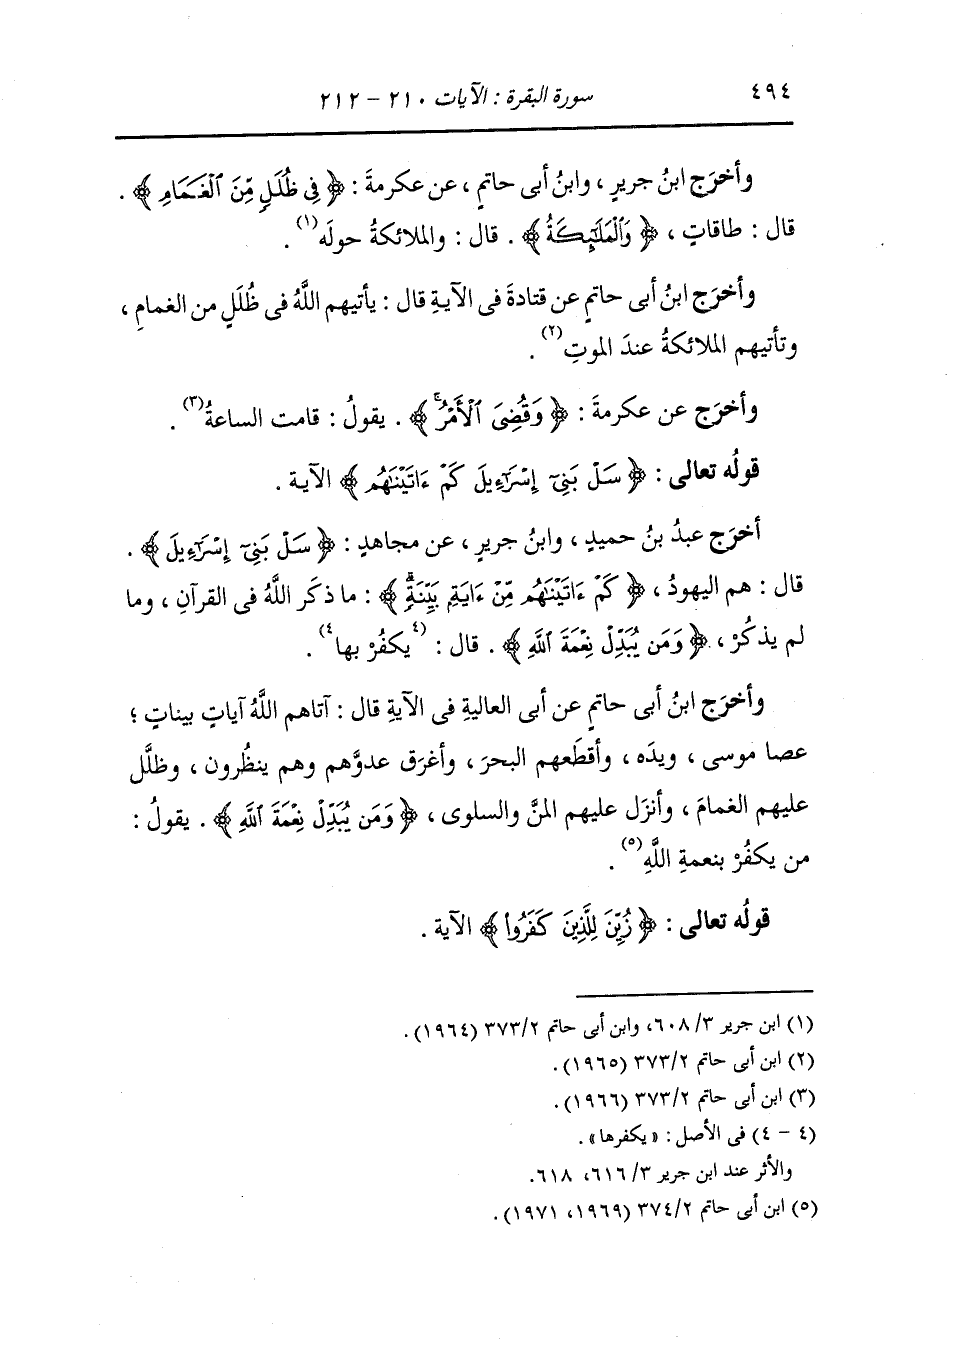 ٤٩٤ سورة البقرة : الآيات ٢١٠ - ٢١٢
وأخرَج ابنُ جريرٍ ، وابنُ أبى حاتمٍ ، عن عكرمةَ : ﴿ فِى ظُلَلٍ مِّنَ ٱلْغَمَامِ ﴾ .
قال : طاقاتٍ ، ﴿ وَٱلْمَلَٰٓئِكَةُ ﴾ . قال : والملائكةُ حولَه(١) .
وأخرَج ابنُ أبى حاتمٍ عن قتادةَ فى الآيةِ قال : يأتيهم اللَّهُ فى ظُلَلٍ من الغمامِ ،
وتأتيهم الملائكةُ عندَ الموتِ(٢) .
وأخرَج عن عكرمةَ : ﴿ وَقُضِىَ ٱلْأَمْرُ ۚ ﴾ . يقولُ : قامت الساعةُ(٣) .
قولُه تعالى : ﴿ سَلْ بَنِىٓ إِسْرَٰٓءِيلَ كَمْ ءَاتَيْنَٰهُم ﴾ الآية .
أخرَج عبدُ بنُ حميدٍ ، وابنُ جريرٍ ، عن مجاهدٍ : ﴿ سَلْ بَنِىٓ إِسْرَٰٓءِيلَ ﴾ .
قال : هم اليهودُ ، ﴿ كَمْ ءَاتَيْنَٰهُم مِّنْ ءَايَةٍۭ بَيِّنَةٍ ۗ ﴾ : ما ذكَر اللَّهُ فى القرآنِ ، وما
لم يذكُرْ ، ﴿ وَمَن يُبَدِّلْ نِعْمَةَ ٱللَّهِ ﴾ . قال : (٤ يكفُرْ بها ٤) .
وأخرَج ابنُ أبى حاتمٍ عن أبى العاليةِ فى الآيةِ قال : آتاهم اللَّهُ آياتٍ بيناتٍ ؛
عصا موسى ، ويدَه ، وأقطَعهم البحرَ ، وأغرَق عدوَّهم وهم ينظُرون ، وظلَّل
عليهم الغمامَ ، وأنزَل عليهم المنَّ والسلوى ، ﴿ وَمَن يُبَدِّلْ نِعْمَةَ ٱللَّهِ ﴾ . يقولُ :
من يكفُرْ بنعمةِ اللَّهِ(٥) .
قولُه تعالى : ﴿ زُيِّنَ لِلَّذِينَ كَفَرُوا۟ ﴾ الآية .
(١) ابن جرير ٣/ ٦٠٨، وابن أبى حاتم ٢/ ٣٧٣ (١٩٦٤).
(٢) ابن أبى حاتم ٢/ ٣٧٣ (١٩٦٥).
(٣) ابن أبى حاتم ٢/ ٣٧٣ (١٩٦٦).
(٤ - ٤) فى الأصل : « يكفرها » .
والأثر عند ابن جرير ٣/ ٦١٦، ٦١٨.
(٥) ابن أبى حاتم ٢/ ٣٧٤ (١٩٦٩، ١٩٧١).